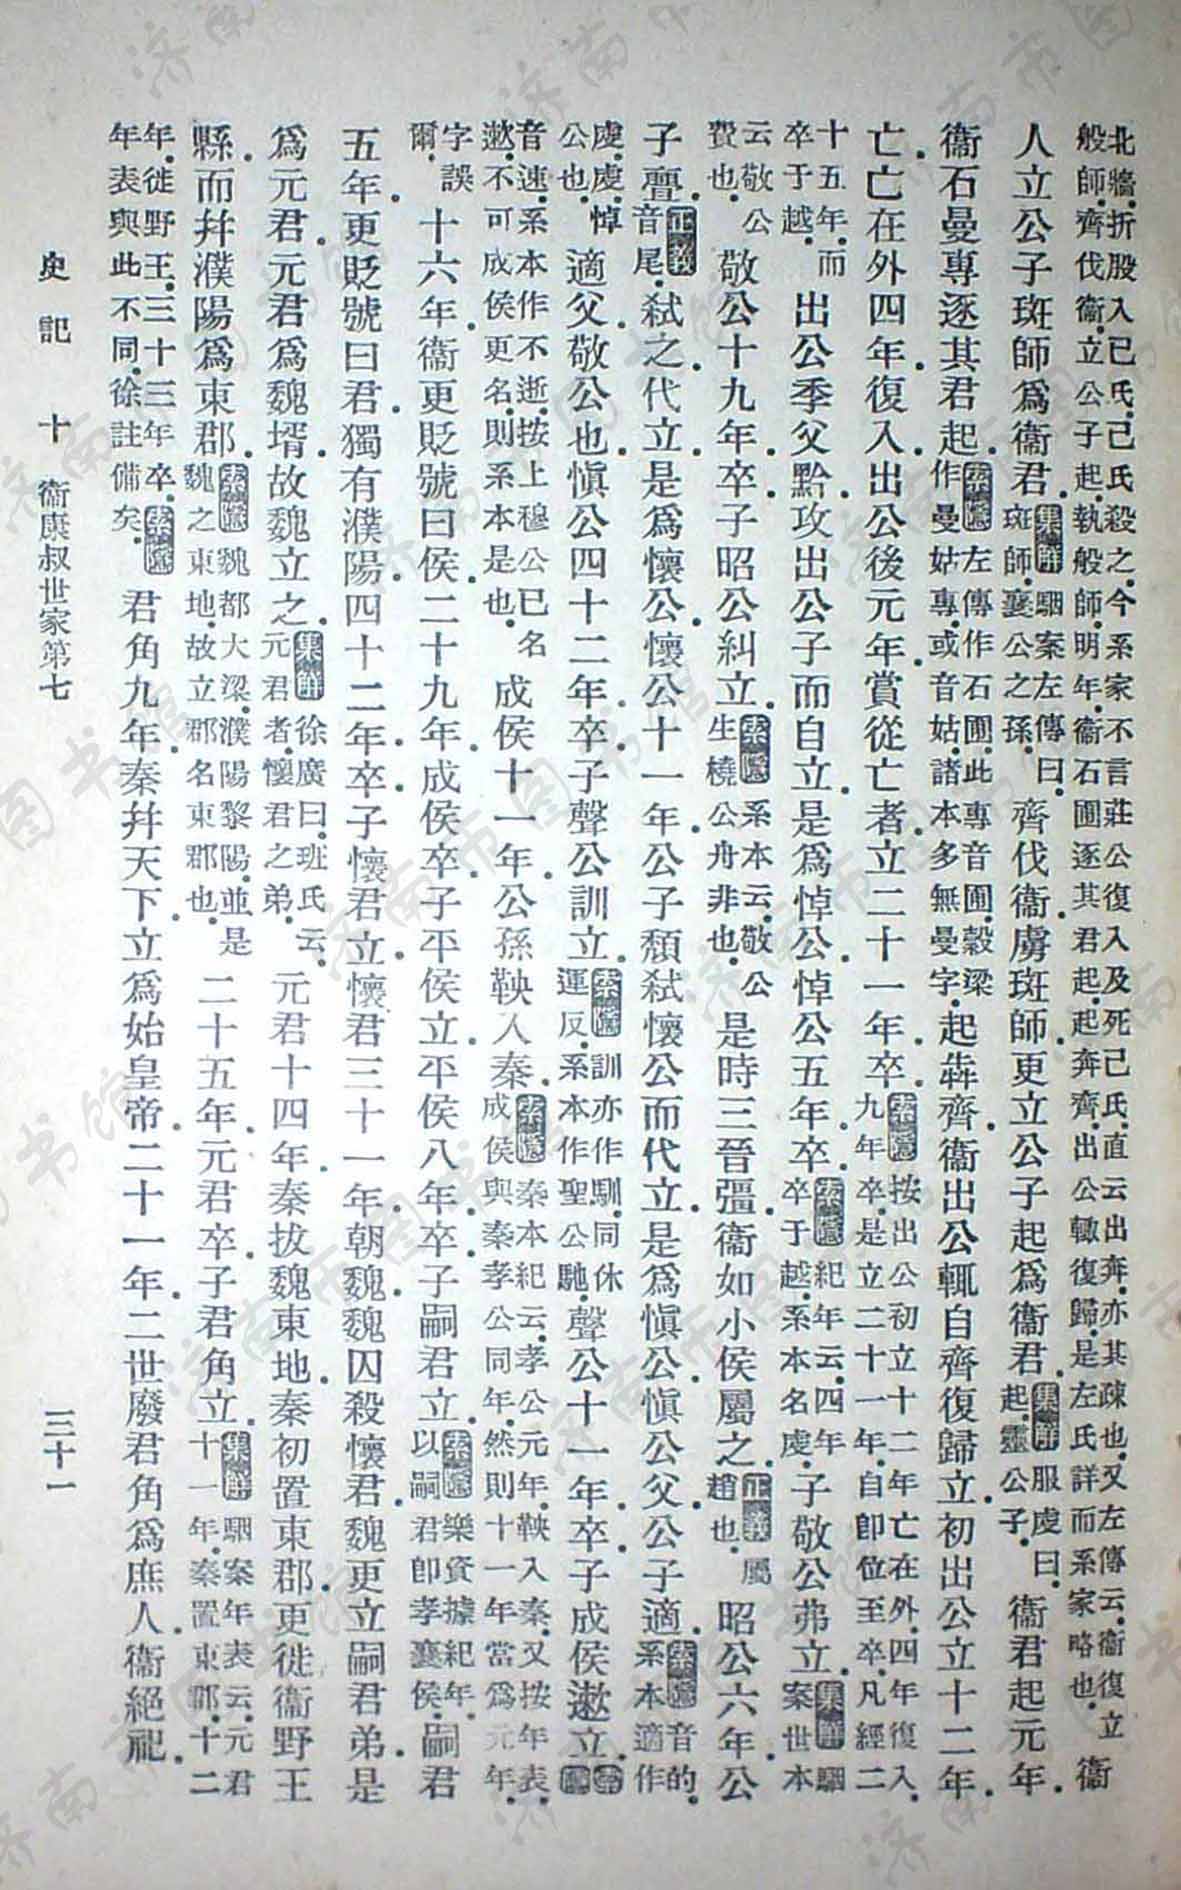 北牆折股入己氏。己氏殺之。今系家不言莊公復入及死己氏。直云出奔。亦其疎也。又左傳云。衞復立般師。齊伐衞。立公子起。執般師。明年。衞石圃逐其君起。起奔齊。出公輒復歸。是左氏詳而系家略也。衞
人立公子斑師爲衞君。集解駰案左傳曰。斑師。襄公之孫。齊伐衞。虜斑師。更立公子起爲衞君。集解服虔曰。起。靈公子。衞君起元年。
衞石曼專逐其君起。索隱左傳作石圃。此專音圃。穀梁作曼姑專。或音姑。諸本多無曼字。起犇齊。衞出公輒自齊復歸立。初出公立十二年。
亡。亡在外四年。復入。出公後元年。賞從亡者。立二十一年卒。索隱按出公初立十二年亡。在外四年復入。九年卒。是立二十一年。自卽位至卒。凡經二
十五年。而卒于越。出公季父黔。攻出公子而自立。是爲悼公。悼公五年卒。索隱紀年云。四年卒于越。系本名虔。子敬公弗立。集解駰案世本
云敬公費也。敬公十九年卒。子昭公糾立。索隱系本云。敬公生橈公舟。非也。是時三晉彊。衞如小侯屬之。正義屬趙也。昭公六年。公
子亹。正義音尾。弑之。代立。是爲懷公。懷公十一年。公子頹弑懷公而代立。是爲愼公。愼公父。公子適。索隱音的。系本適作
虔。虔。悼公也。適父。敬公也。愼公四十二年卒。子聲公訓立。索隱訓亦作馴。同休運反。系本作聖公馳。聲公十一年卒。子成侯遬立。索隱
音速。系本作不逝。按上穆公已名遬。不可成侯更名。則系本是也。成侯十一年。公孫鞅入秦。索隱秦本紀云。孝公元年。鞅入秦。又按年表。成侯與秦孝公同年。然則十一年當爲元年。
字誤爾。十六年。衞更貶號曰侯。二十九年。成侯卒。子平侯立。平侯八年卒。子嗣君立。索隱樂資據紀年。以嗣君卽孝襄侯。嗣君
五年。更貶號曰君。獨有濮陽。四十二年卒。子懷君立。懷君三十一年。朝魏。魏囚殺懷君。魏更立嗣君弟。是
爲元君。元君爲魏壻。故魏立之。集解徐廣曰。班氏云。元君者。懷君之弟。元君十四年。秦拔魏東地。秦初置東郡。更徙衞野王
縣。而幷濮陽爲東郡。索隱魏都大梁。濮陽黎陽。並是魏之東地。故立郡名東郡也。二十五年。元君卒。子君角立。集解駰案年表云。元君十一年。秦置東郡。十二
年。徙野王。三十三年卒。索隱年表與此不同。徐註備矣。君角九年。秦幷天下。立爲始皇帝。二十一年。二世廢君角爲庶人。衞絕祀。
史記 十 衞康叔世家第七 三十一